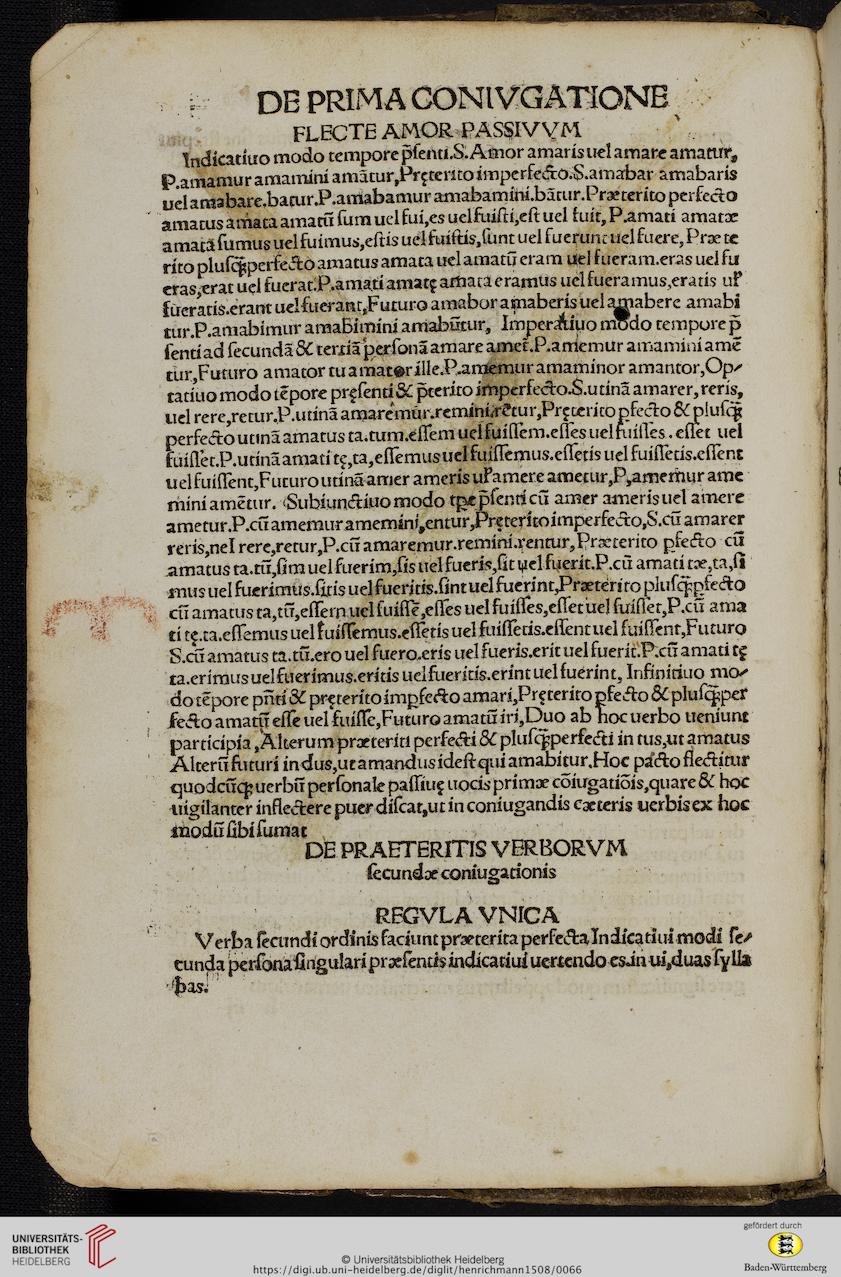 DE PRIMA CONIVGATIONE
FLECTE AMOR PASSIVVM
Indicatiuo modo tempore p̃ſenti.S.Amor amaris uel amare amatur,
P.amamur amamini amãtur,Pręterito imperfecto.S.amabar amabaris
uel amabare.batur.P.amabamur amabamini.bãtur.Præterito perfecto
amatus amata amatũ ſum uel fui,es uel fuiſti,eſt uel fuit, P.amati amatæ
amata ſumus uel fuimus,eſtis uel fuiſtis,ſunt uel fuerunt uel fuere, Præte
rito pluſq̃perfecto amatus amata uel amatũ eram uel fueram.eras uel fu
eras,erat uel fuerat.P.amati amatę amata eramus uel fueramus,eratis uł
fueratis.erant uel fuerant,Futuro amabor amaberis uel amabere amabi
tur.P.amabimur amabimini amabũtur, Imperatiuo modo tempore p̃
ſenti ad ſecundã & tertiã perſonã amare amet̃.P.amemur amamini amẽ
tur,Futuro amator tu amator ille.P.amemur amaminor amantor,Op-
tatiuo modo tẽpore pręſenti & p̃terito imperfecto.S.utinã amarer, reris,
uel rere,retur.P.utinã amaremur.remini.rẽtur,Pręterito ꝑfecto & pluſq̃
perfecto utinã amatus ta.tum.eſſem uel fuiſſem.eſſes uel fuiſſes . eſſet uel
fuiſſet.P.utinã amati tę,ta,eſſemus uel fuiſſemus.eſſetis uel fuiſſetis.eſſent
uel fuiſſent,Futuro utinã amer ameris uł amere ametur,P,amemur ame
mini amẽtur. Subiunctiuo modo tp̃e p̃ſenti cũ amer ameris uel amere
ametur.P.cũ amemur amemini,entur,Pręterito imperfecto,S.cũ amarer
reris,nel rere,retur,P.cũ amaremur.remini.rentur,Præterito ꝑfecto cũ
amatus ta.tũ,ſim uel fuerim,ſis uel fueris,ſit uel fuerit.P.cũ amati tæ,ta,ſi
mus uel fuerimus.ſitis uel fueritis.ſint uel fuerint,Præterito pluſq̃ꝑfecto
cũ amatus ta,tũ,eſſem uel fuiſſẽ,eſſes uel fuiſſes,eſſet uel fuiſſet,P.cũ ama
ti tę.ta.eſſemus uel fuiſſemus.eſſetis uel fuiſſetis.eſſent uel fuiſſent,Futuro
S.cũ amatus ta.tũ.ero uel fuero.eris uel fueris.erit uel fuerit.P.cũ amati tę
ta.erimus uel fuerimus.eritis uel fueritis.erint uel fuerint, Infinitiuo mo-
do tẽpore pñti & pręterito imꝑfecto amari,Pręterito ꝑfecto & pluſq̃per
fecto amatũ eſſe uel fuiſſe,Futuro amatũ iri,Duo ab hoc uerbo ueniunt
participia ,Alterum præteriti perfecti & pluſq̃perfecti in tus,ut amatus
Alterũ futuri in dus,ut amandus ideſt qui amabitur.Hoc pacto flectitur
quodcũqꝫ uerbũ perſonale paſſiuę uocis primæ cõiugatiõis,quare & hoc
uigilanter inflectere puer diſcat,ut in coniugandis cæteris uerbis ex hoc
modũ ſibi ſumat
DE PRAETERITIS VERBORVM
ſecundæ coniugationis
REGVLA VNICA
Verba ſecundi ordinis faciunt præterita perfecta Indicatiui modi ſe-
cunda perſona ſingulari præſentis indicatiui uertendo es.in ui,duas ſylla
bas.
UNIVERSITÄTS-
BIBLIOTHEK
HEIDELBERG
© Universitätsbibliothek Heidelberg
https://digi.ub.uni-heidelberg.de/diglit/henrichmann1508/0066
gefördert durch
Baden-Württemberg